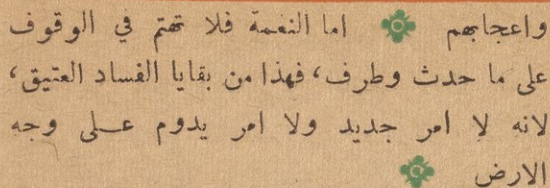 واعجابهم اما النعمة فلا تهتم في الوقوف
على ما حدث وطرف، فهذا من بقايا الفساد العتيق،
لانه لا امر جديد ولا امر يدوم على وجه
الارض